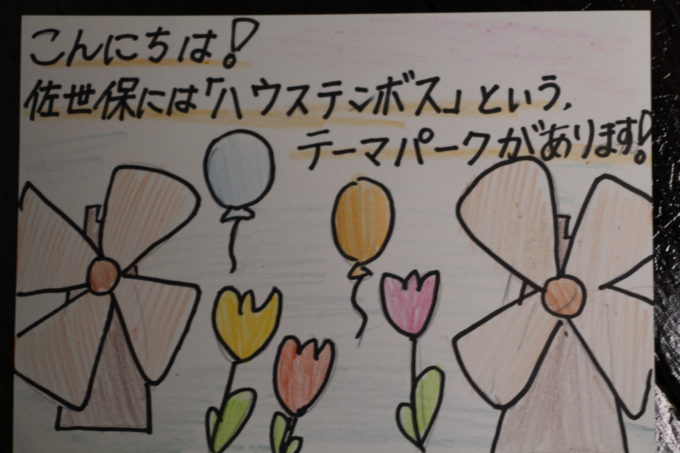 こんにちは!
佐世保には「ハウステンボス」という、
テーマパークがあります!